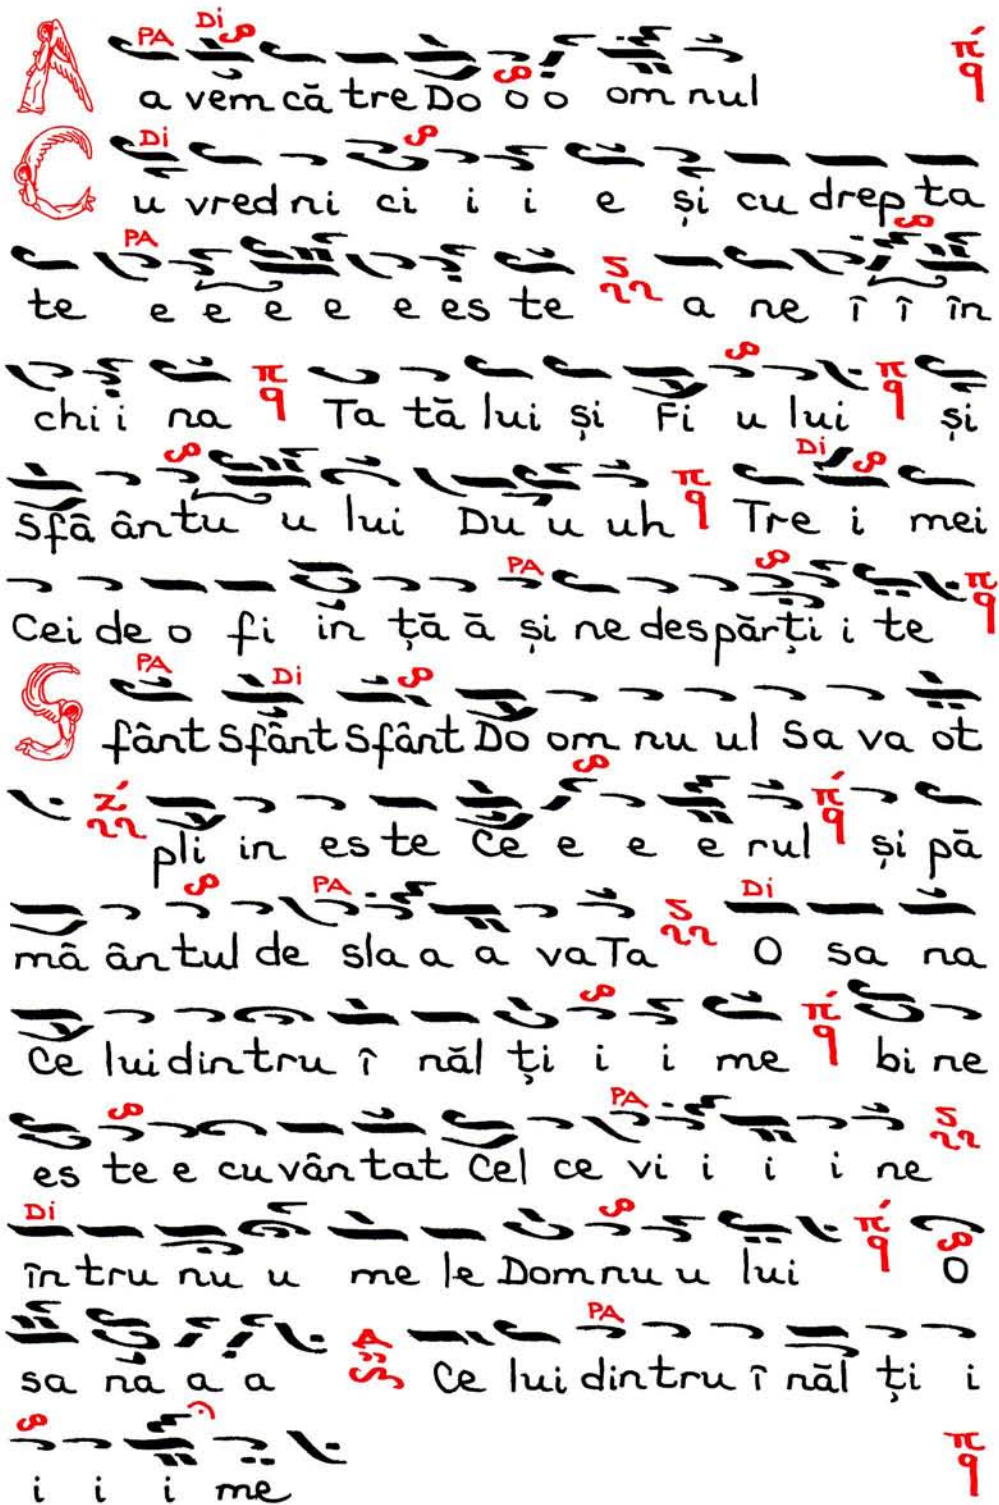 PA Di
A a vem că tre Do o o om nul π̕ q
Di
C u vred ni ci i i e și cu drep ta
PA
te e e e e e es te a ne î î în
chi i na π q Ta tă lui și Fi u lui π q și
Di
Sfâ ân tu u lui Du u uh π q Tre i mei
PA
Cei de o fi in ță ă și ne des păr ți i te π q
PA Di
S fânt Sfânt Sfânt Do om nu ul Sa va ot
z̕ pli in es te Ce e e e rul π̕ q și pă
PA Di
mâ ân tul de sla a a va Ta O sa na
Ce lui din tru î năl ți i i me π̕ q bi ne
PA
es te e cu vân tat Cel ce vi i i i ne
Di
în tru nu u me le Dom nu u lui π̕ q O
PA
sa na a a Ce lui din tru î năl ți i
i i i me π q